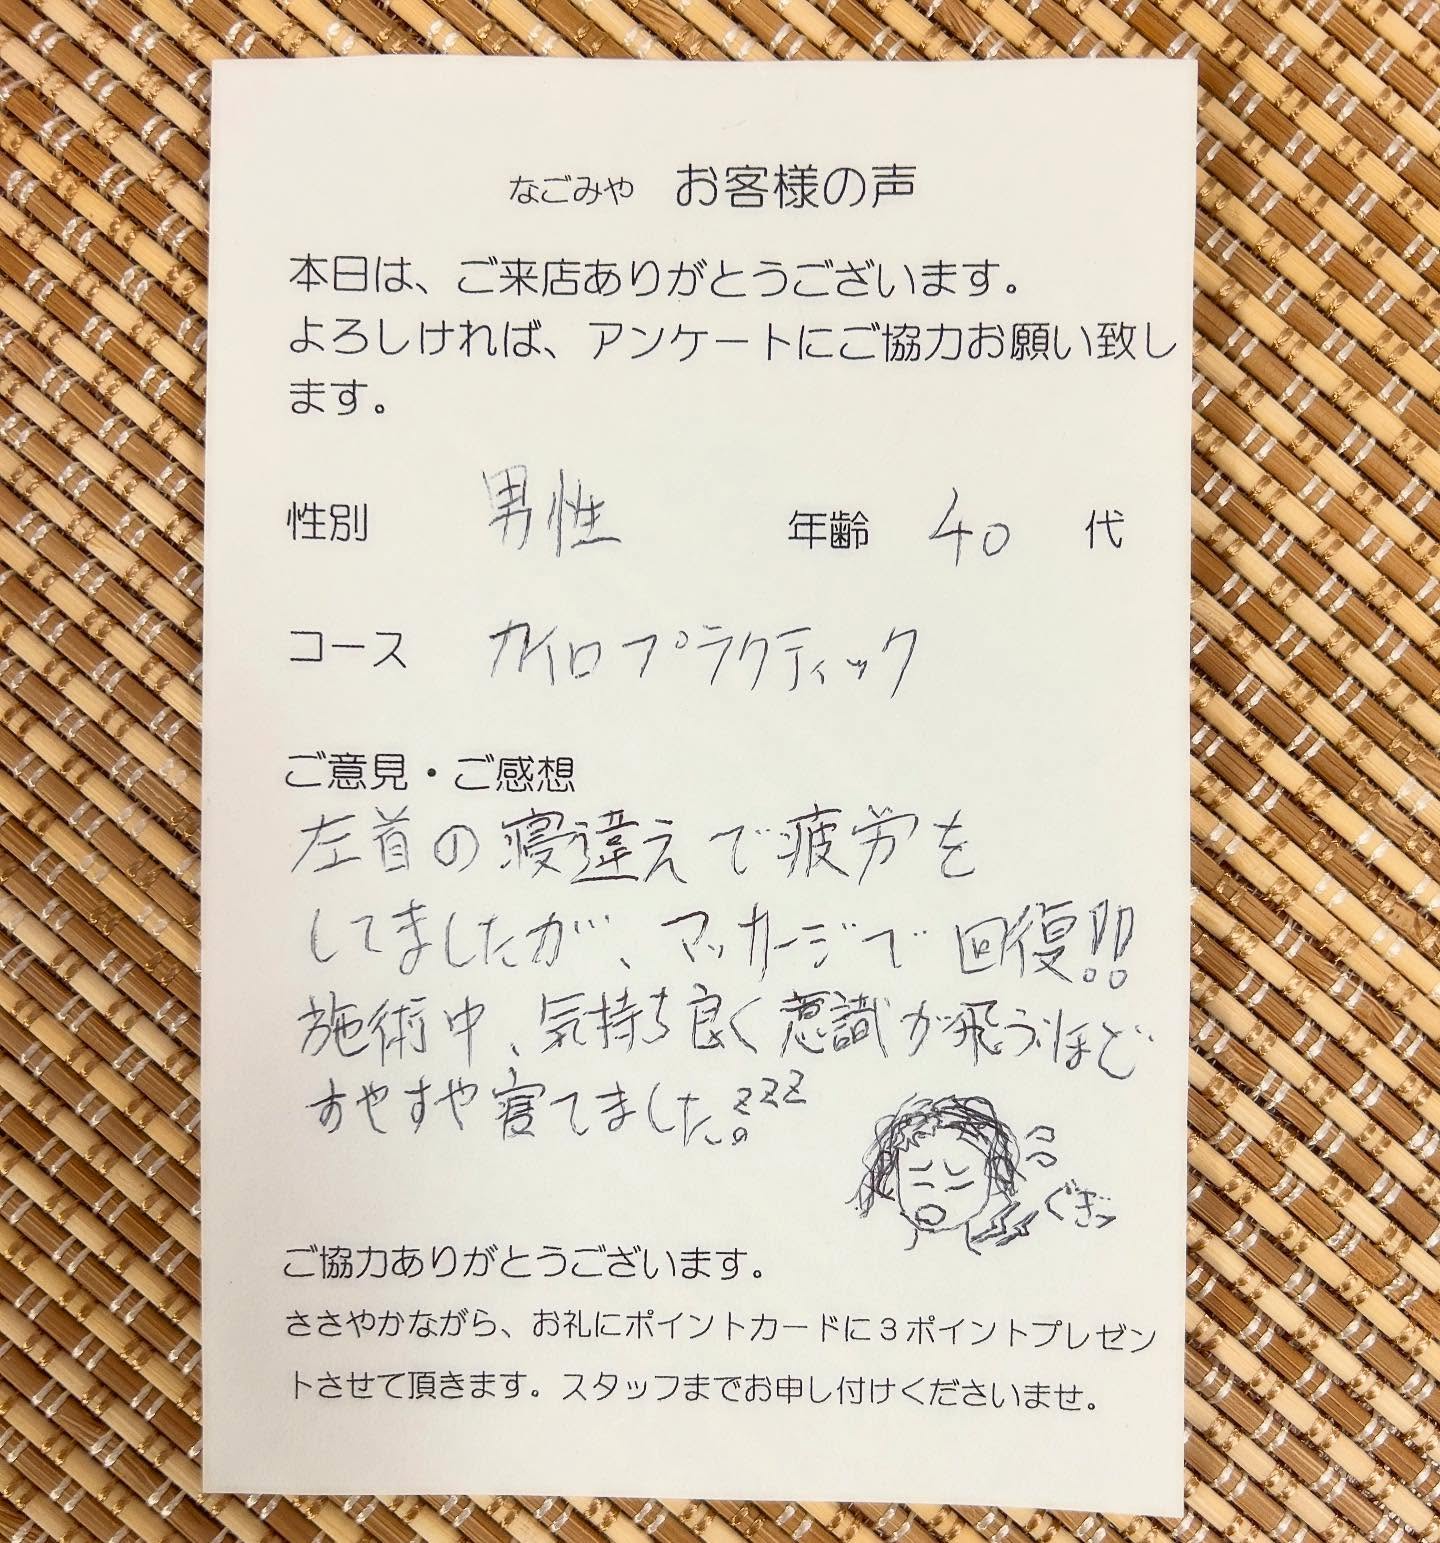 なごみや　お客様の声
本日は、ご来店ありがとうございます。
よろしければ、アンケートにご協力お願い致し
ます。
性別　男性　年齢　40　代
コース　カイロプラクティック
ご意見・ご感想
左首の寝違えで疲労を
してましたが、マッサージで回復!!
施術中、気持ち良く意識が飛ぶほど
すやすや寝てました。zzz
ぐぎっ
ご協力ありがとうございます。
ささやかながら、お礼にポイントカードに３ポイントプレゼン
トさせて頂きます。スタッフまでお申し付けくださいませ。